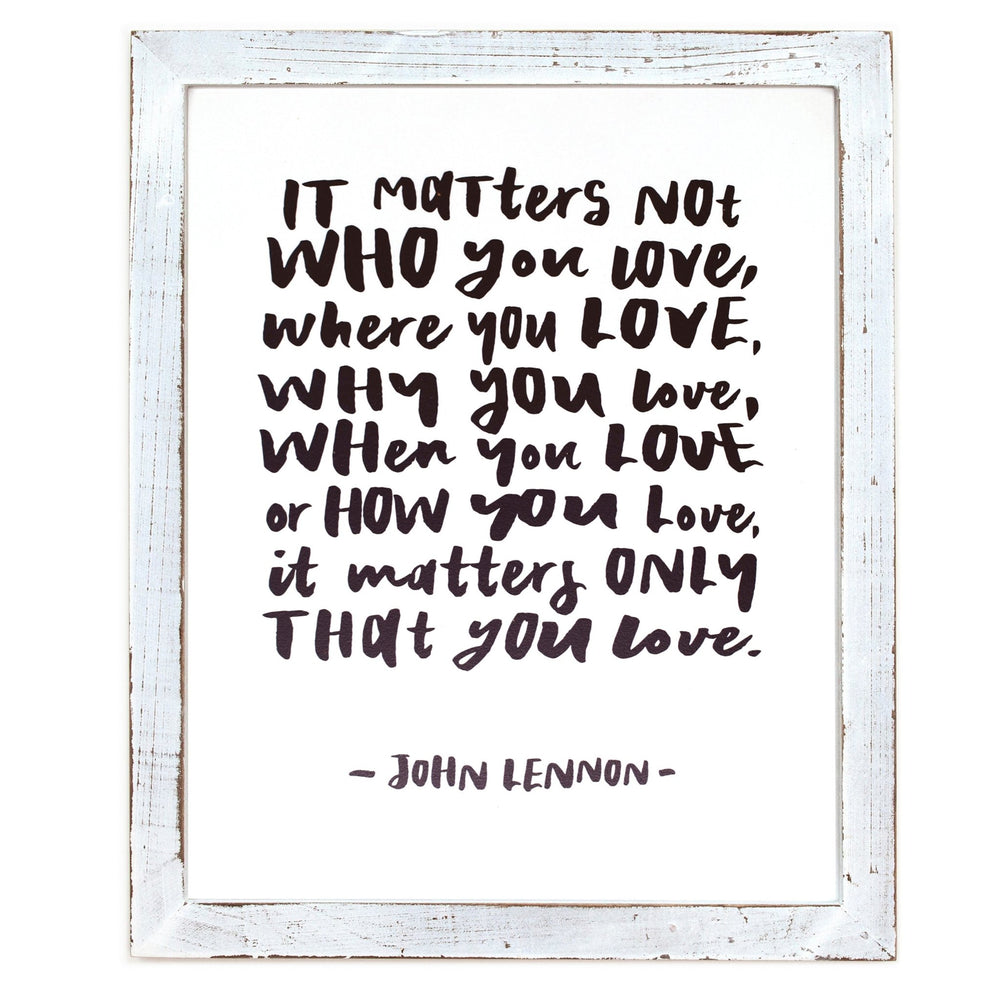 IT matters not
WHO you love,
where you LOVE,
WHY you love,
WHen you LOVE
or HOW you Love,
it matters ONLY
THat you love.
- JOHN LENNON -